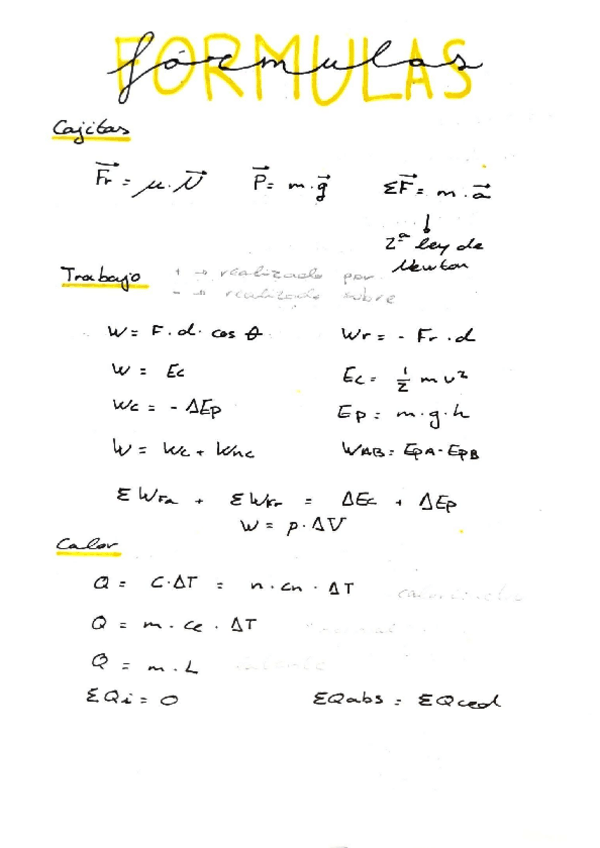 FORMULAS
fórmulas
Cajitas
Fr = μ · N P = m · g ΣF = m · a
↓
2ª ley de
Newton
Trabajo + → realizado por
- → realizado sobre
W = F · d · cos θ Wr = - Fr · d
W = Ec Ec = 1/2 m v²
Wc = - ΔEp Ep = m · g · h
W = Wc + Wnc WAB = EpA - EpB
Σ WFa + Σ WFr = ΔEc + ΔEp
W = p · ΔV
Calor
Q = C · ΔT = n · cn · ΔT
Q = m · ce · ΔT
Q = m · L latente
ΣQi = 0 ΣQabs = ΣQced